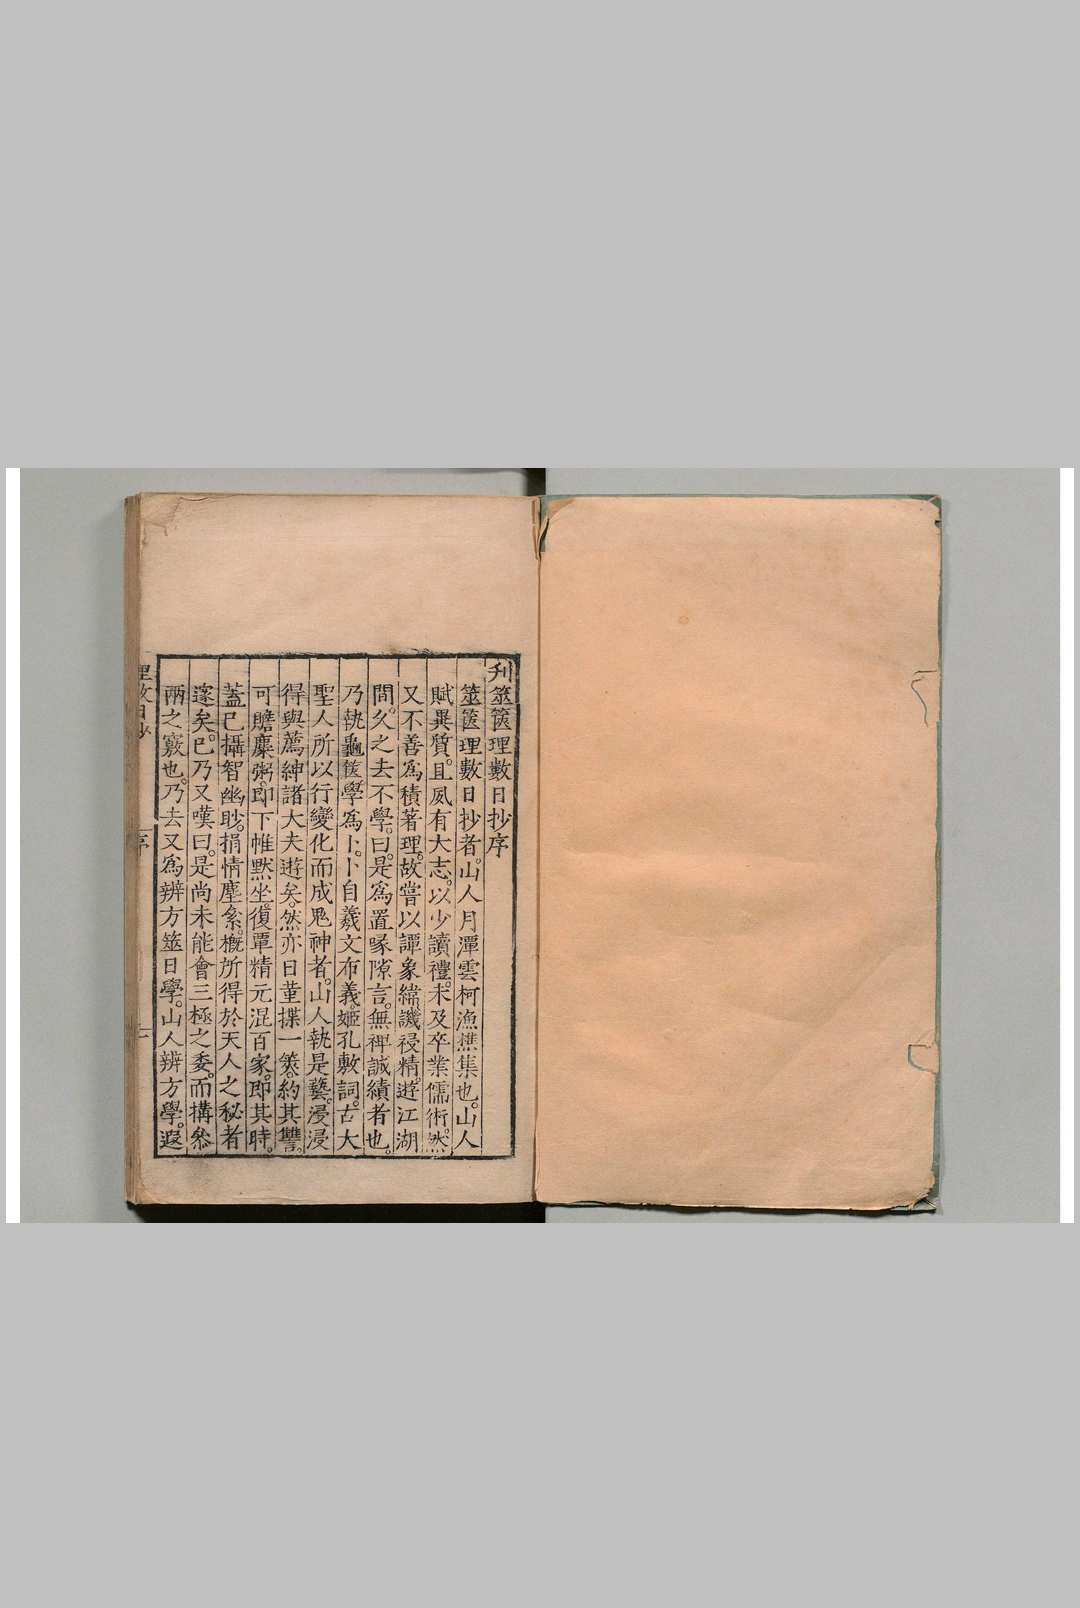 刋筮篋理數日抄序
筮篋理數日抄者。山人月潭雲柯漁樵集也。山人
賦異質。且夙有大志。以少讀禮。未及卒業儒術。然
又不善為積著理。故嘗以譚象緯譏祲精。遊江湖
間。久之去不學。曰。是為置喙隙言。無裨誠績者也。
乃執龜篋。學為卜。卜自羲文布義。姬孔敷詞。古大
聖人所以行變化而成鬼神者。山人執是藝。浸浸
得與薦紳諸大夫遊矣。然亦日菫揲一筴。約其讐。
可贍麋粥。即下帷默坐。復覃精元混百家。即其時。
蓋已攝智幽眇。捐情塵系。槪所得於天人之秘者
邃矣。已乃又嘆曰。是尚未能會三極之委。而搆叅
兩之竅也。乃去又為辨方筮日學。山人辨方學。遐
理数日抄 序 一